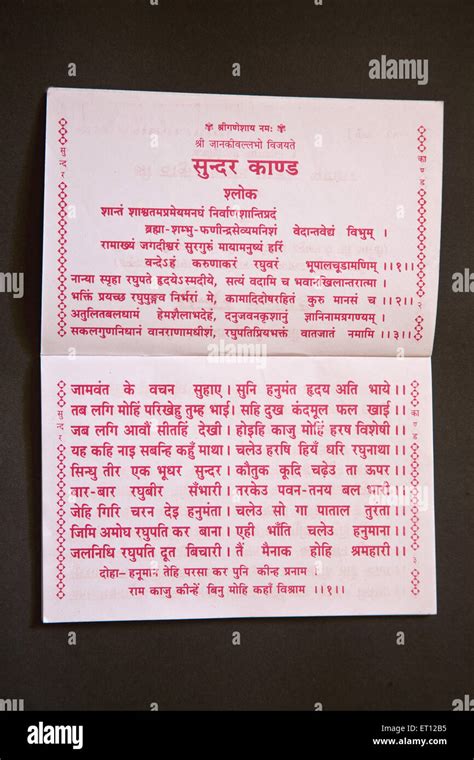 ❋ श्रीगणेशाय नमः ❋
श्री जानकीवल्लभो विजयते
सुन्दर काण्ड
श्लोक
शान्तं शाश्वतमप्रमेयमनघं निर्वाणशान्तिप्रदं
ब्रह्मा-शम्भु-फणीन्द्रसेव्यमनिशं वेदान्तवेद्यं विभुम् ।
रामाख्यं जगदीश्वरं सुरगुरुं मायामनुष्यं हरिं
वन्देऽहं करुणाकरं रघुवरं भूपालचूडामणिम् ।।१।।
नान्या स्पृहा रघुपते हृदयेऽस्मदीये, सत्यं वदामि च भवानखिलान्तरात्मा ।
भक्तिं प्रयच्छ रघुपुङ्गव निर्भरां मे, कामादिदोषरहितं कुरु मानसं च ।।२।।
अतुलितबलधामं हेमशैलाभदेहं, दनुजवनकृशानुं ज्ञानिनामग्रगण्यम् ।
सकलगुणनिधानं वानराणामधीशं, रघुपतिप्रियभक्तं वातजातं नमामि ।।३।।
सुन्दर
काण्ड
जामवंत के वचन सुहाए। सुनि हनुमंत हृदय अति भाये।।
तब लगि मोहिं परिखेहु तुम्ह भाई। सहि दुख कंदमूल फल खाई।।
जब लगि आवौं सीतहिं देखी। होइहि काजु मोहिं हरष विशेषी।।
यह कहि नाइ सबन्हि कहुँ माथा। चलेउ हरषि हियँ धरि रघुनाथा।।
सिन्धु तीर एक भूधर सुन्दर। कौतुक कूदि चढ़ेउ ता ऊपर।।
बार-बार रघुबीर सँभारी। तरकेउ पवन-तनय बल भारी।।
जेहि गिरि चरन देइ हनुमंता। चलेउ सो गा पाताल तुरंता।।
जिमि अमोघ रघुपति कर बाना। एही भाँति चलेउ हनुमाना।।
जलनिधि रघुपति दूत बिचारी। तैं मैनाक होहि श्रमहारी।।
दोहा- हनूमान तेहि परसा कर पुनि कीन्ह प्रनाम ।
राम काजु कीन्हें बिनु मोहि कहाँ विश्राम ।।१।।
सुन्दर
काण्ड
alamy
www.alamy.com - ET12B5